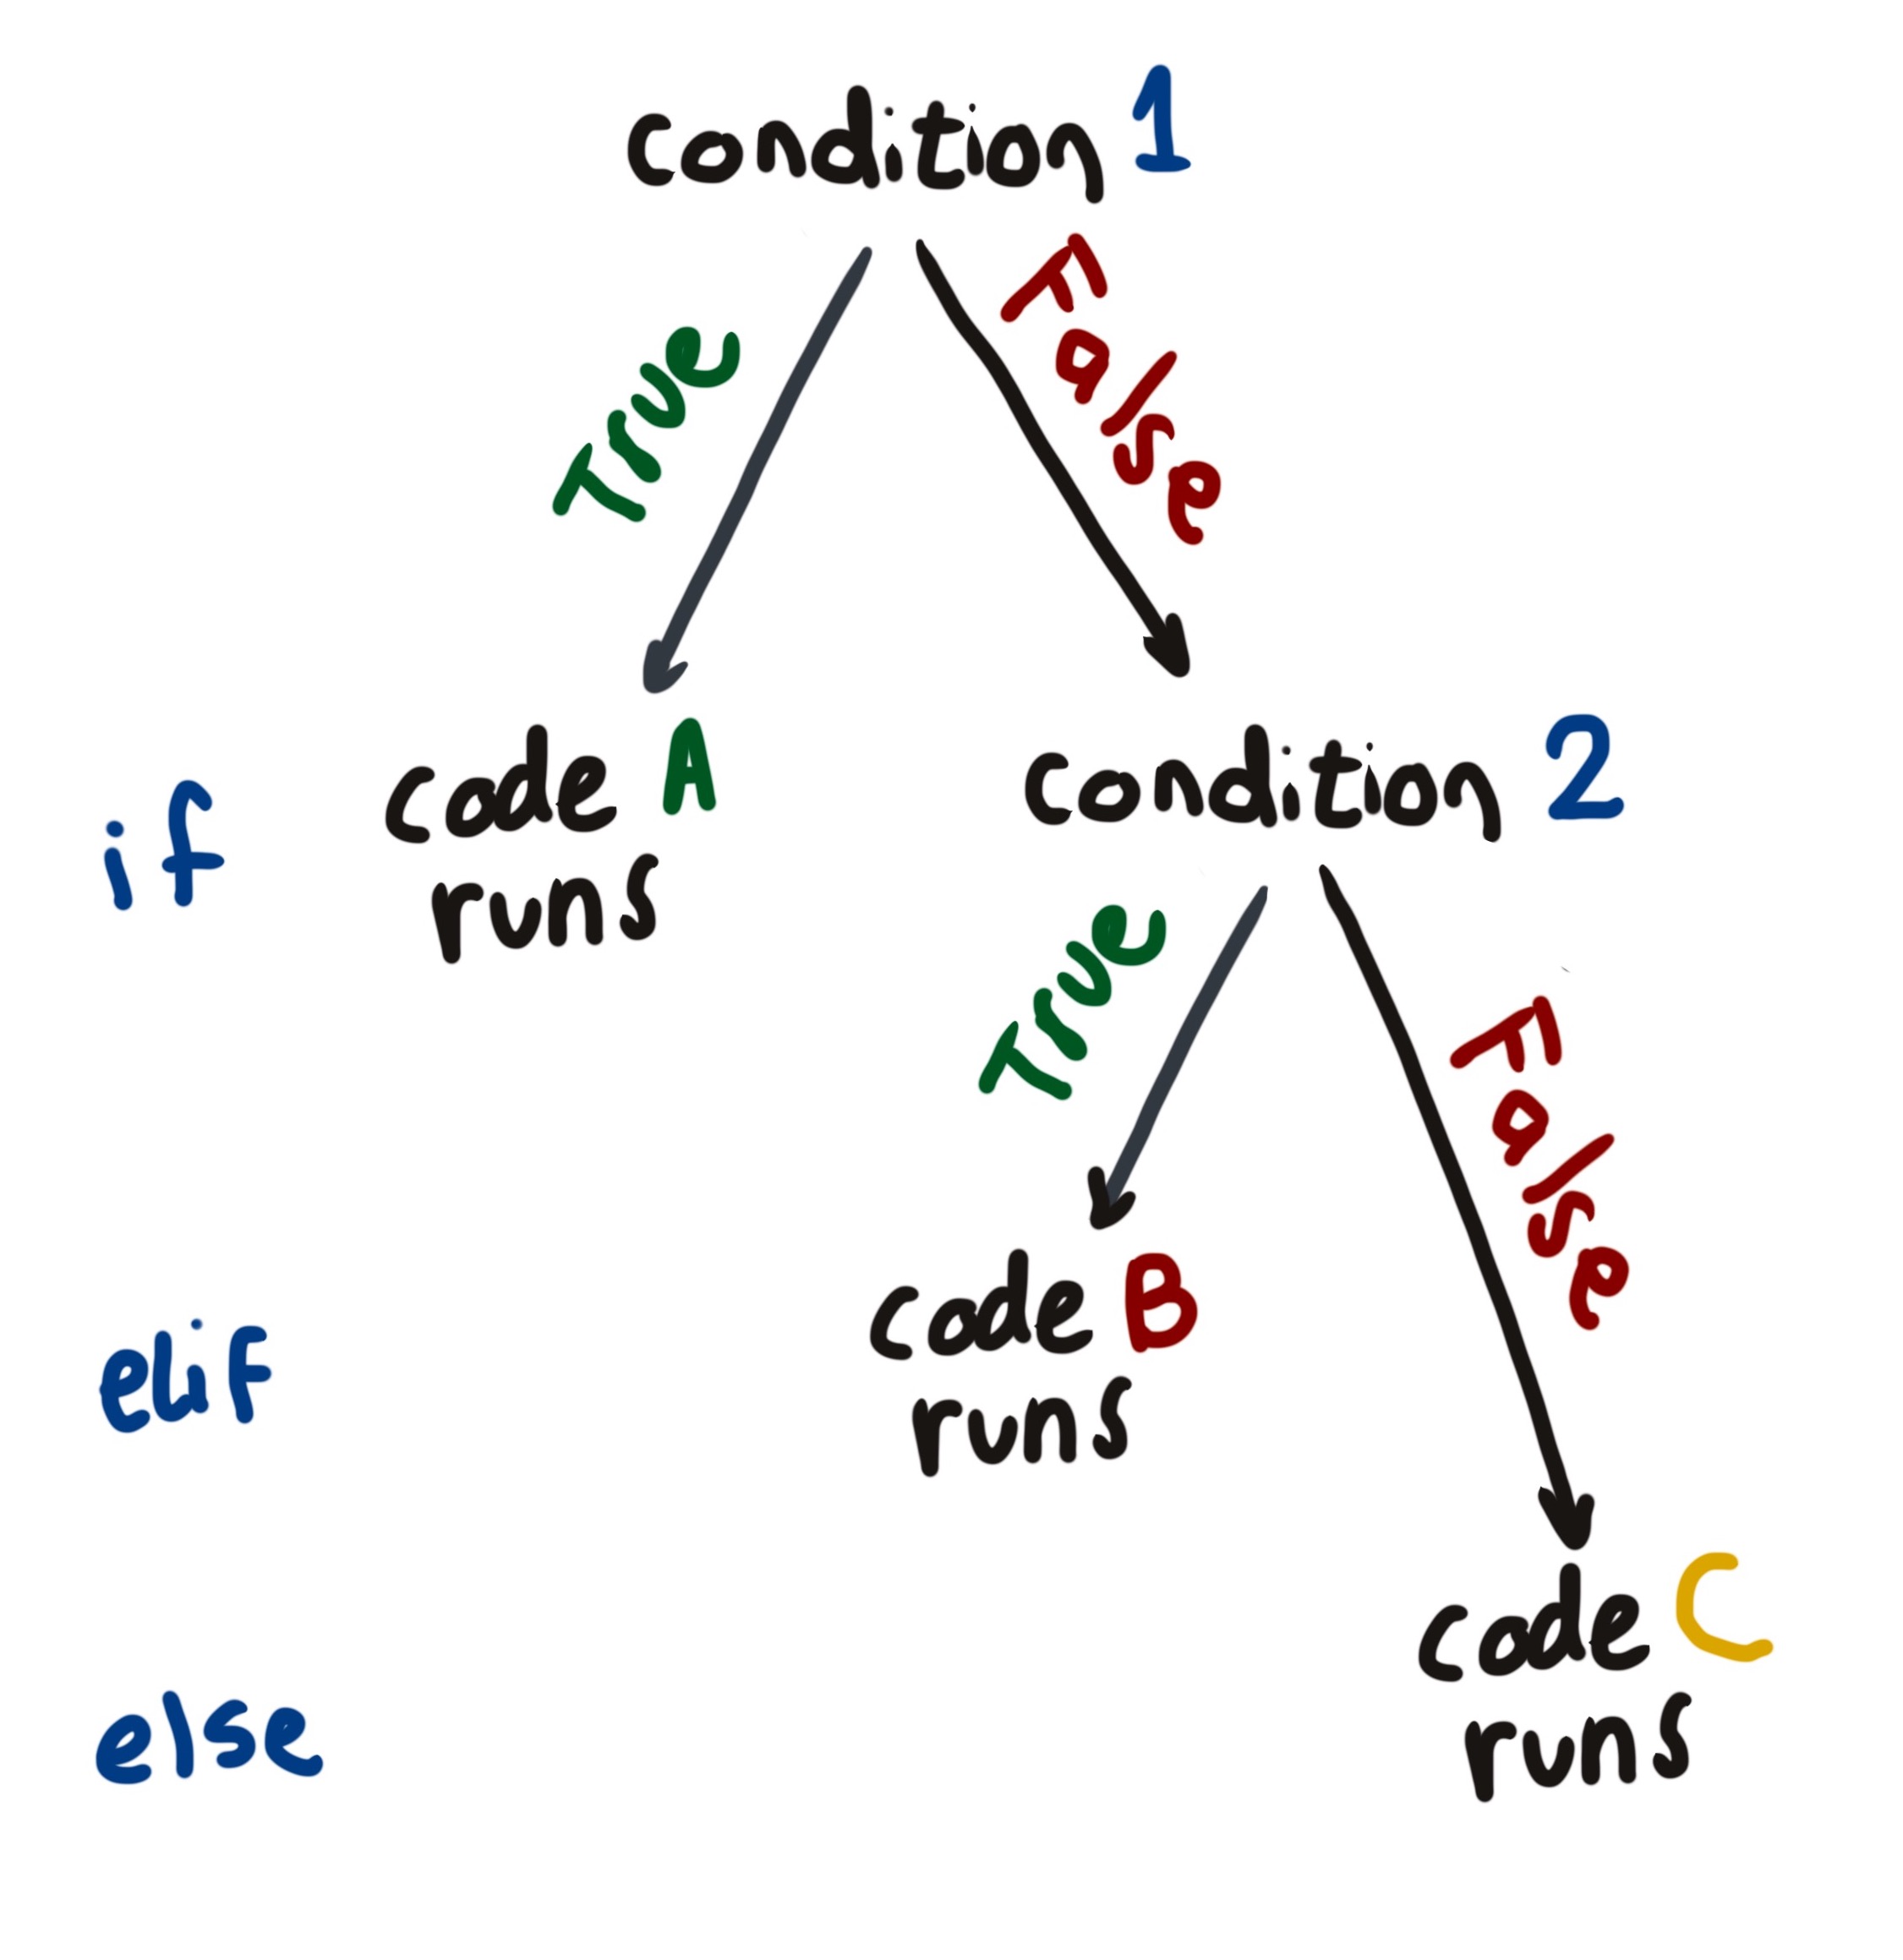 condition 1
True
False
if
code A
runs
condition 2
True
False
elif
code B
runs
else
code C
runs